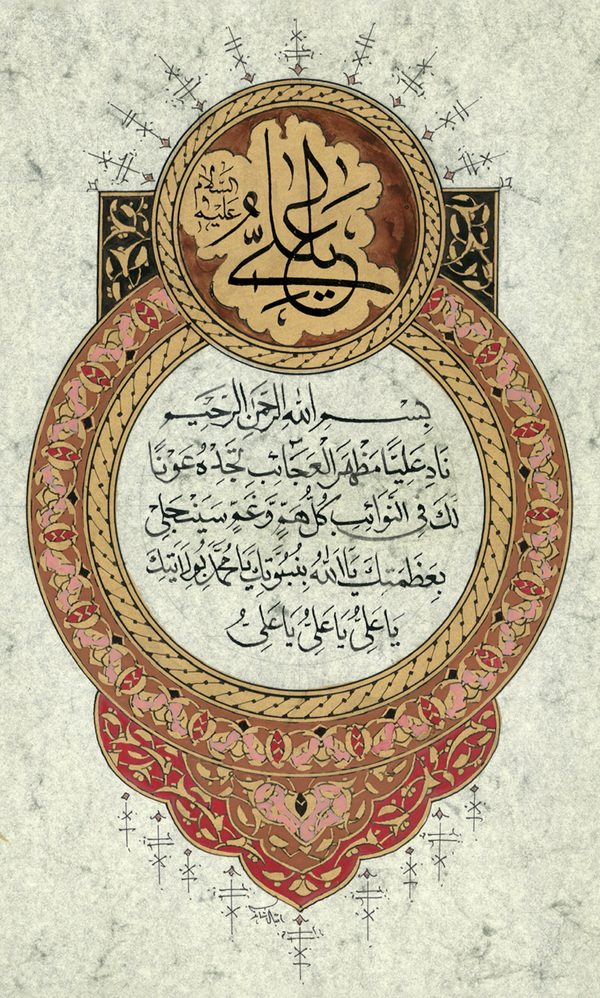 يا علي
عليه السلام
بِسْمِ اللهِ الرَّحْمَنِ الرَّحِيمِ
نَادِ عَلِيًّا مَظْهَرَ الْعَجَائِبِ تَجِدْهُ عَوْنًا
لَكَ فِي النَّوَائِبِ كُلُّ هَمٍّ وَغَمٍّ سَيَنْجَلِي
بِعَظَمَتِكَ يَا اَللهُ بِنُبُوَّتِكَ يَا مُحَمَّدُ بِوِلَايَتِكَ
يَا عَلِيُّ يَا عَلِيُّ يَا عَلِيُّ